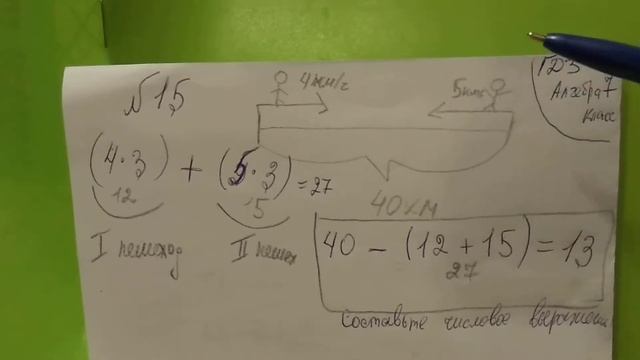 № 15
4 км/ч
5 км/ч
ГДЗ
Алгебра 7
класс
(4 · 3) + (5 · 3) = 27
12
15
I пешеход
II пешех
40 км
40 - (12 + 15) = 13
27
Составьте числовое выражение